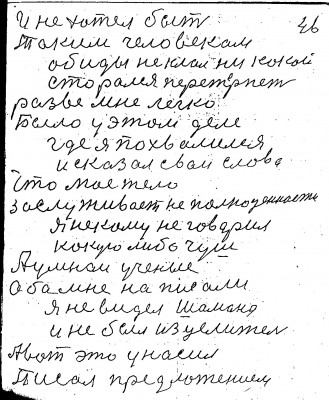 И не хотел быт
26
Таким человекам
обиды неклал ни кокой
сторался перетрпет
разве мне легко
Было у этом деле
где я похвалился
и сказал свои слова
Что мое тело
заслуживает не полноценность
я некому не говорил
кокую либо чуш
А умнои учение
Оба мне на писали
я не видел Шамана
и не был изцелител
А вот это у насил
Писал предложением